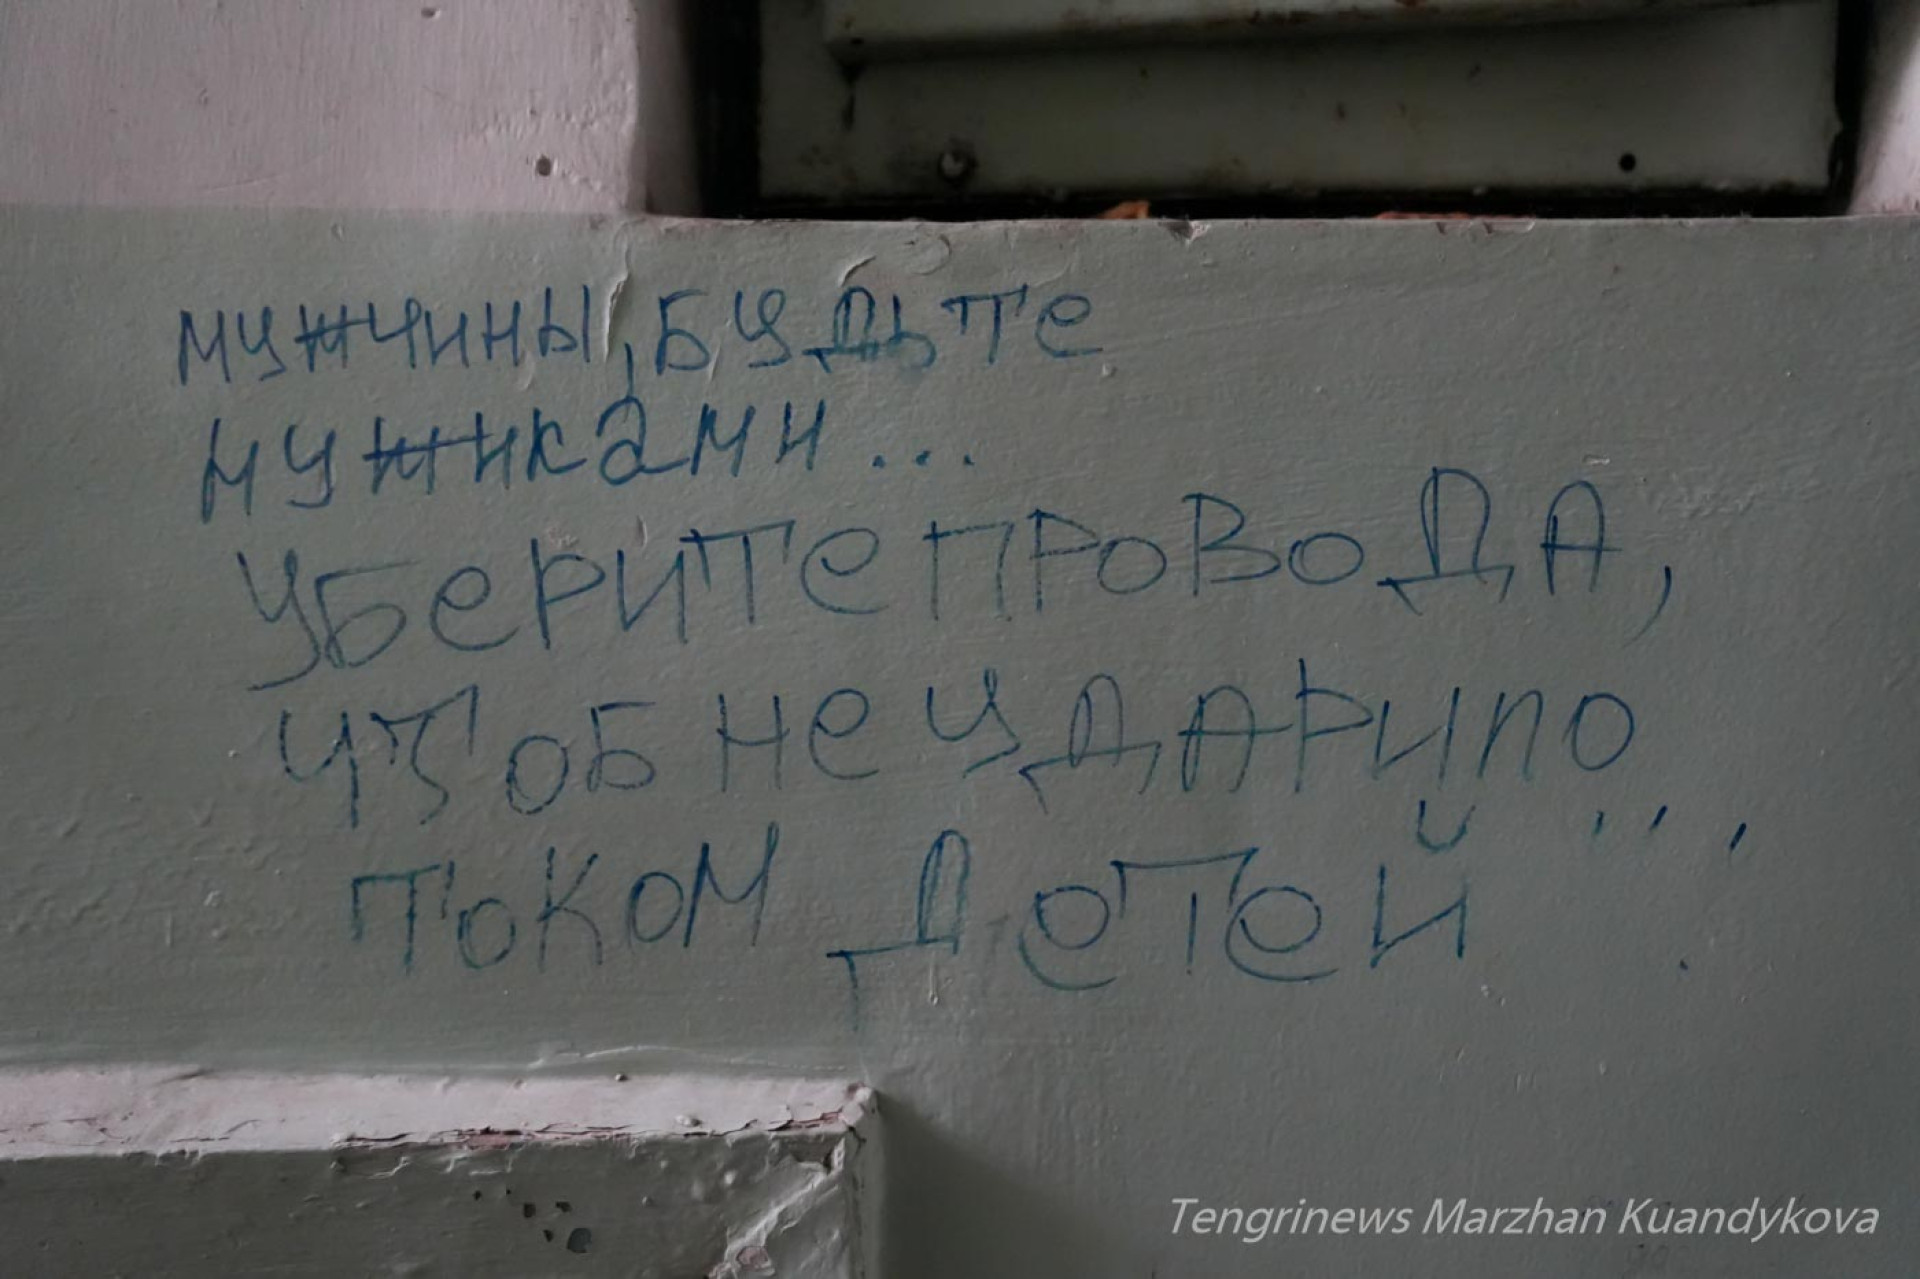 мужчины, будьте
мужиками...
уберите провода,
чтоб не ударило...
током детей
Tengrinews Marzhan Kuandykova